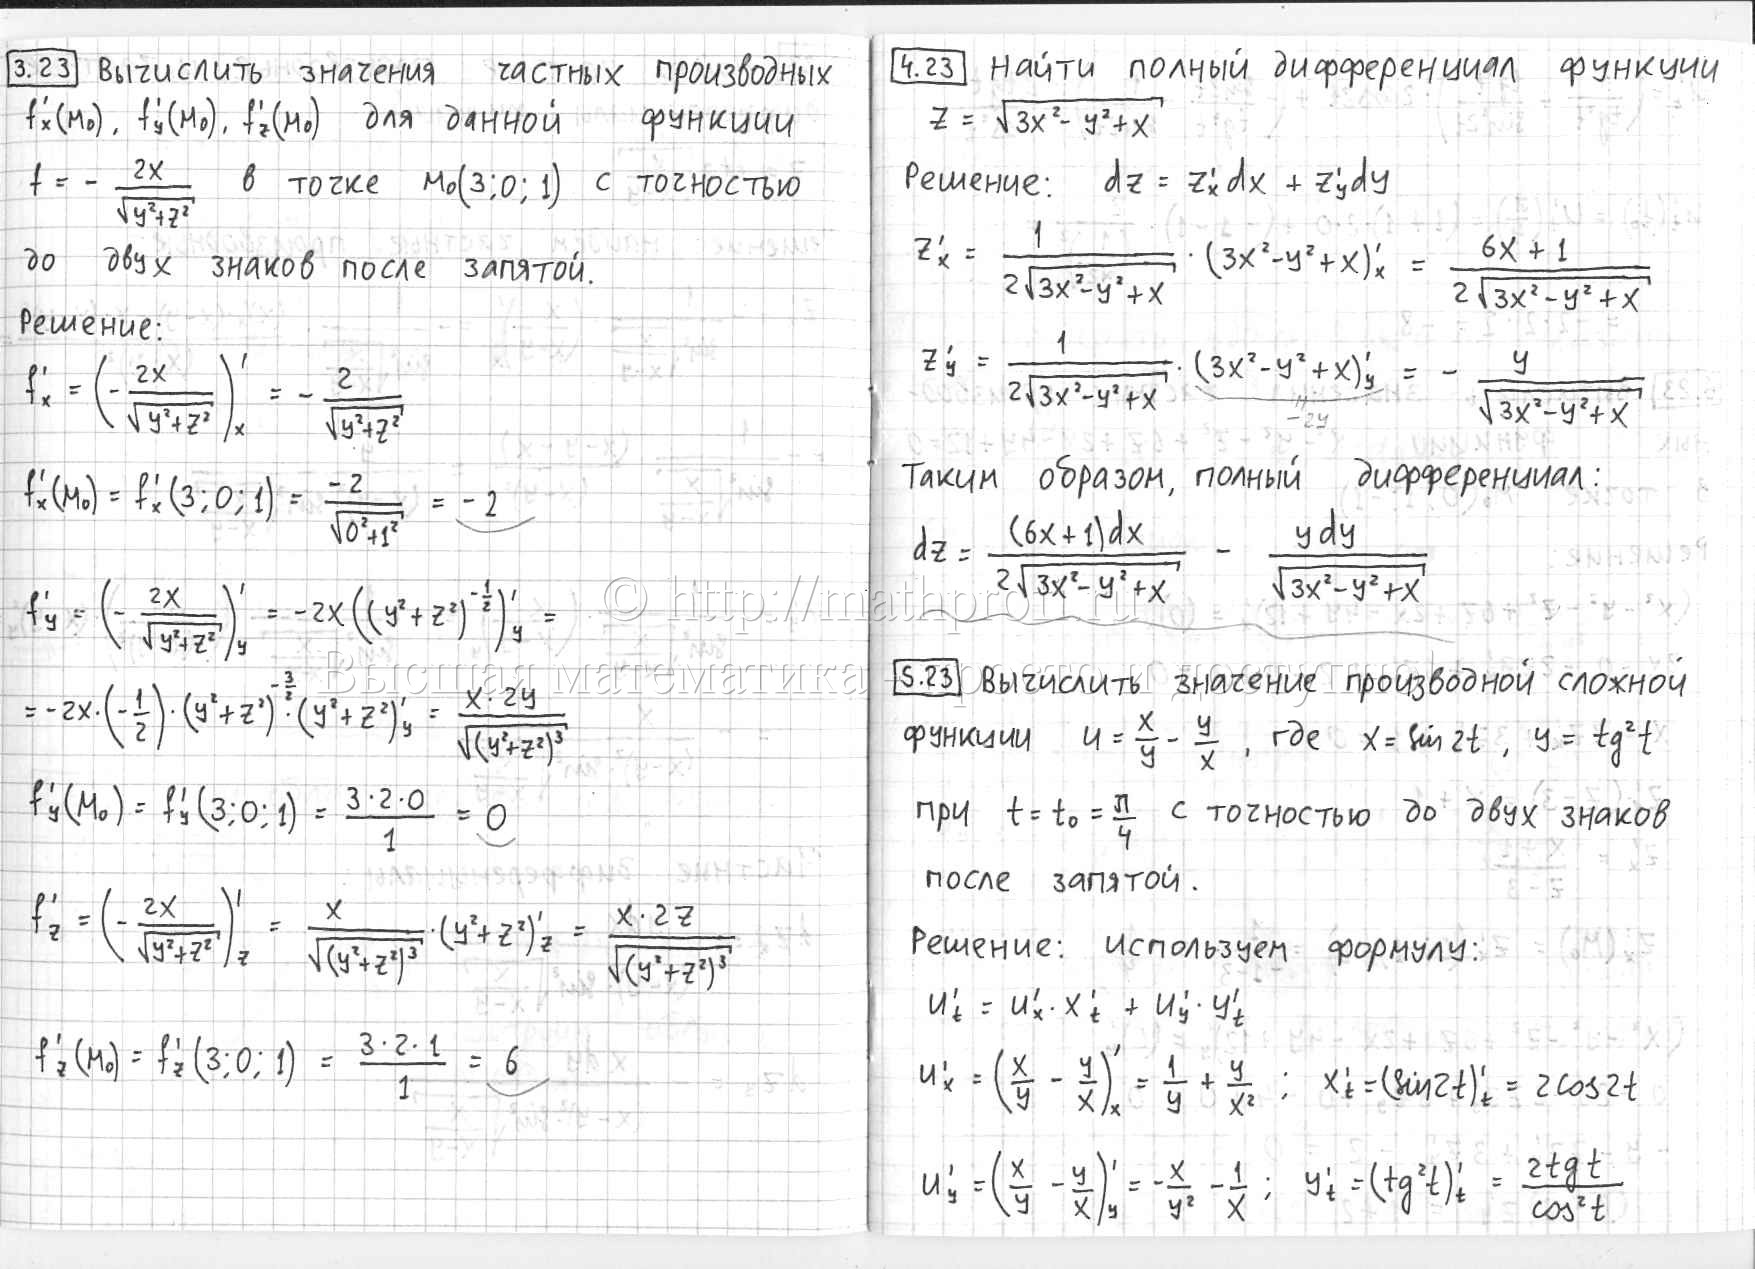 3.23 Вычислить значения частных производных
f'x(M₀), f'y(M₀), f'z(M₀) для данной функции
f = - 2x/√(y²+z²) в точке M₀(3; 0; 1) с точностью
до двух знаков после запятой.
Решение:
f'x = (- 2x/√(y²+z²))'x = - 2/√(y²+z²)
f'x(M₀) = f'x(3; 0; 1) = -2/√(0²+1²) = -2
f'y = (- 2x/√(y²+z²))'y = -2x((y²+z²)^(-1/2))'y =
= -2x·(-1/2)·(y²+z²)^(-3/2)·(y²+z²)'y = x·2y/√((y²+z²)³)
f'y(M₀) = f'y(3; 0; 1) = 3·2·0/1 = 0
f'z = (- 2x/√(y²+z²))'z = x/√((y²+z²)³)·(y²+z²)'z = x·2z/√((y²+z²)³)
f'z(M₀) = f'z(3; 0; 1) = 3·2·1/1 = 6
4.23 Найти полный дифференциал функции
z = √(3x²-y²+x)
Решение: dz = z'x dx + z'y dy
z'x = 1/(2√(3x²-y²+x)) · (3x²-y²+x)'x = (6x+1)/(2√(3x²-y²+x))
z'y = 1/(2√(3x²-y²+x)) · (3x²-y²+x)'y = - y/√(3x²-y²+x)
= -2y
Таким образом, полный дифференциал:
dz = (6x+1)dx/(2√(3x²-y²+x)) - ydy/√(3x²-y²+x)
5.23 Вычислить значение производной сложной
функции u = x/y - y/x, где x = sin2t, y = tg²t
при t = t₀ = π/4 с точностью до двух знаков
после запятой.
Решение: используем формулу:
u't = u'x · x't + u'y · y't
u'x = (x/y - y/x)'x = 1/y + y/x² ; x't = (sin2t)'t = 2cos2t
u'y = (x/y - y/x)'y = - x/y² - 1/x ; y't = (tg²t)'t = 2tgt/cos²t
© http://mathprofi.ru
Высшая математика – просто и доступно!